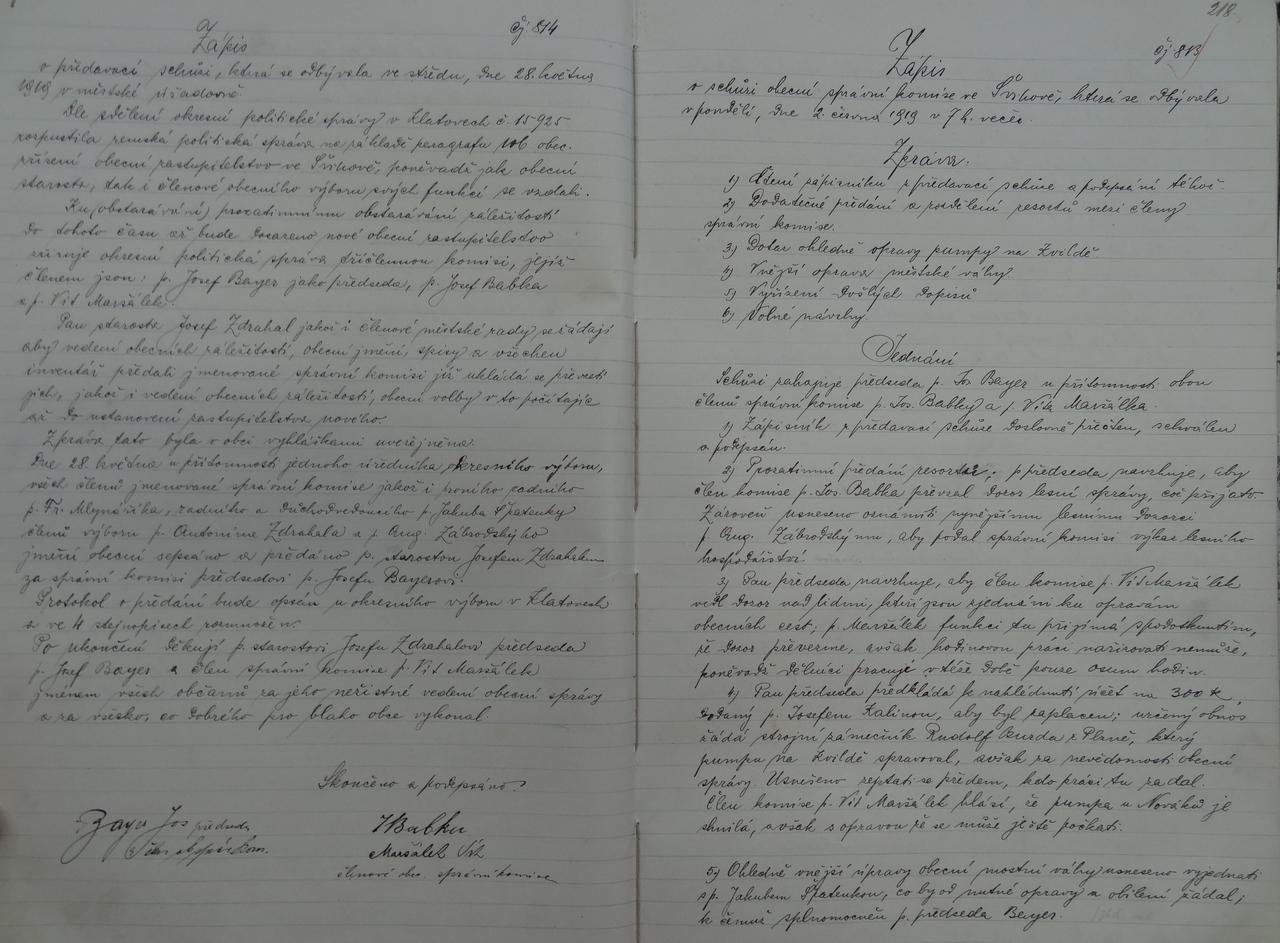 čj. 814
Zápis
o předavací schůzi, která se odbývala ve středu, dne 28. května
1919 v městské úřadovně.
Dle sdělení okresní politické správy v Klatovech č. 15925
rozpustila zemská politická správa na základě paragrafu 106 obec.
zřízení obecní zastupitelstvo ve Švihově, poněvadž jak obecní
starosta, tak i členové obecního výboru svých funkcí se vzdali.
Ku (obstarávání) prozatimnímu obstarávání záležitostí
do tohoto času až bude dosazeno nové obecní zastupitelstvo
zřizuje okresní politická správa tříčlennou komisi, jejíž
členem jsou: p. Josef Bayer jako předseda, p. Josef Babka
a p. Vít Maršálek.
Pan starosta Josef Zdrahal jakož i členové městské rady se žádají
aby vedení obecních záležitostí, obecní jmění, spisy a všechen
inventář předali jmenované správní komisi jíž ukládá se převzíti
jich, jakož i vedení obecních záležitostí, obecní volby v to počítajíc
až do ustanovení zastupitelstva nového.
Zpráva tato byla v obci vyhláškami uveřejněna.
Dne 28. května u přítomnosti jednoho úředníka okresního výboru,
všech členů jmenované správní komise jakož i prvního radního
p. Fr. Mlynáříka, radního a důchodvedoucího p. Jakuba Špatenky
členů výboru p. Antonína Zdrahala a p. Aug. Zábrodského
jmění obecní sepsáno a předáno p. starostou Josefem Zdrahalem
za správní komisi předsedovi p. Josefu Bayerovi.
Protokol o předání bude opsán u okresního výboru v Klatovech
a ve 4 stejnopisech rozmnožen.
Po ukončení děkují p. starostovi Josefu Zdrahalovi předseda
p. Josef Bayer a člen správní komise p. Vít Maršálek
jménem všech občanů za jeho nezištné vedení obecní správy
a za všecko, co dobrého pro blaho obce vykonal.
Skončeno a podepsáno.
Bayer Jos předseda
J Babka
Maršálek Vít
členové obec. správní komise
218.
čj. 813
Zápis
o schůzi obecní správní komise ve Švihově, která se odbývala
v pondělí, dne 2. června 1919 v 7 h. večer.
Zpráva:
1) Čtení zápisníku z předavací schůze a podepsání téhož.
2) Dodatečné předání a rozdělení resortů mezi členy
správní komise.
3) Dotaz ohledně opravy pumpy na Kvildě
4) Vnější oprava městské váhy
5) Vyřízení došlých dopisů
6) Volné návrhy.
Jednání
Schůzi zahajuje předseda p. Jos Bayer u přítomnosti obou
členů správní komise p. Jos. Babky a p. Víta Maršálka.
1) Zápisník z předavací schůze doslovně přečten, schválen
a podepsán.
2) Prozatimní předání resortů; p předseda navrhuje, aby
člen komise p. Jos. Babka převzal dozor lesní správy, což přijato.
Zároveň usneseno oznámiti nynějšímu lesnímu dozorci
p. Aug. Zábrodskýmu, aby podal správní komisi výkaz lesního
hospodářství.
3) Pan předseda navrhuje, aby člen komise p. Vít Maršálek
vedl dozor nad lidmi, kteří jsou zjednáni ku opravám
obecních cest; p. Maršálek funkci tu přijímá s podotknutím,
že dozor převezme, avšak hodinovou práci nařizovati nemůže,
poněvadž dělníci pracují v téže době pouze osum hodin.
4) Pan předseda předkládá k nahlédnutí účet na 300 K,
dodaný p. Josefem Kalinou, aby byl zaplacen; určený obnos
žádá strojní zámečník Rudolf Burda z Plzně, který
pumpu na Kvildě spravoval, avšak za nevědomosti obecní
správy. Usnešeno zeptati se předem, kdo práci tu zadal.
Člen komise p. Vít Maršálek hlásí, že pumpa u Nováků je
shnilá, avšak s opravou že se může ještě počkati.
5) Ohledně vnější úpravy obecní mostní váhy usneseno vyjednati
s p. Jakubem Špatenkou, co by od nutné opravy a obílení žádal;
k čemuž splnomocněn p. předseda Bayer.